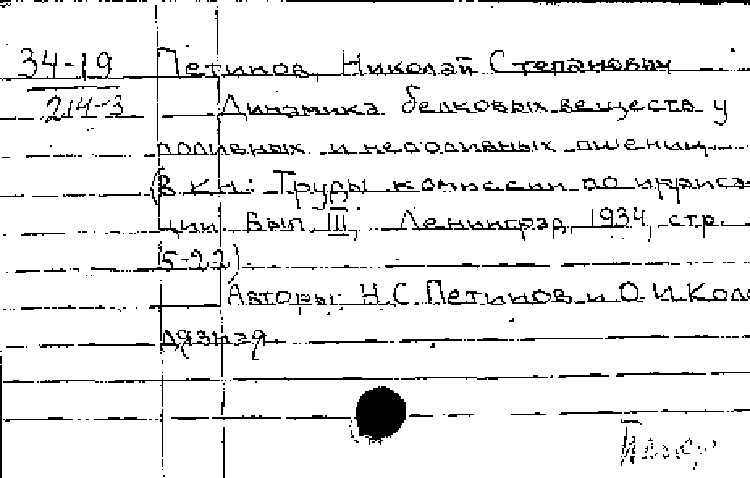 34-19 Петинов, Николай Степанович
214-3 Динамика белковых веществ у
поливных и неполивных пшениц.
(В кн: Труды комиссии по иррига-
ции. Вып. III, Ленинград, 1934, стр.
5-22)
Авторы: Н.С. Петинов и О.И. Коло
дязная